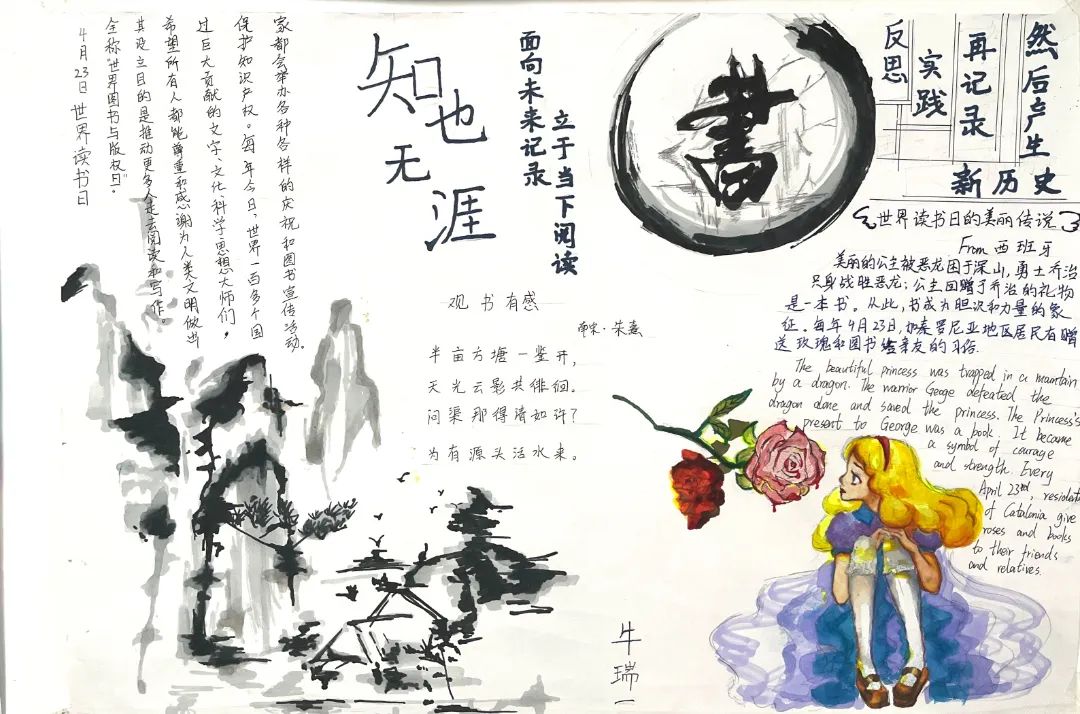 4月23日世界读书日
全称"世界图书与版权日"。
其设立目的是推动更多人走去阅读和写作。
希望所有人都能尊重和感谢为人类文明做出
过巨大贡献的文字、文化科学思想大师们，
保护知识产权。每年今日，世界一百多个国
家都会举办各种各样的庆祝和图书宣传活动。
知也
无涯
面向未来记录
立于当下阅读
書
反思
实践
再记录
然后产生
新历史
观书有感
南宋·朱熹
半亩方塘一鉴开，
天光云影共徘徊。
问渠那得清如许？
为有源头活水来。
世界读书日的美丽传说
From 西班牙
美丽的公主被恶龙困于深山，勇士乔治
只身战胜恶龙；公主回赠于乔治的礼物
是一本书。从此，书成为胆识和力量的象
征。每年4月23日，加泰罗尼亚地区居民有赠
送玫瑰和图书给亲友的习俗.
The beautiful princess was trapped in a mantain
by a dragon. The warrior Geoge defeated the
dragon alone and saved the princess. The Princess's
present to George was a book. It became
a symbol of courage
and strength. Every
April 23rd, resident
of Catalonia give
roses and books
to their friends
and relatives.
牛瑞一